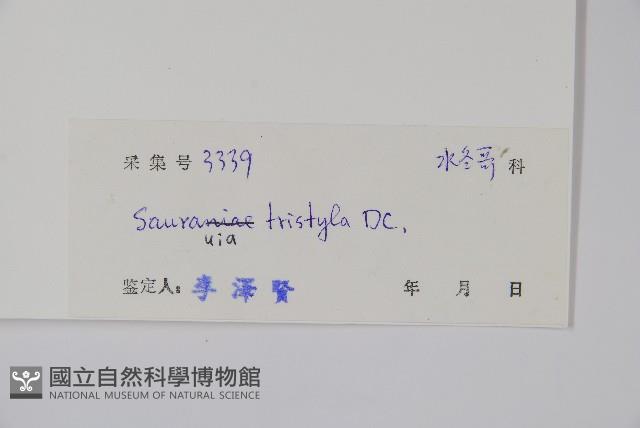 采集号 3339 水冬哥 科
Sauraniae tristyla DC.
uia
鉴定人: 李泽贤 年 月 日
國立自然科學博物館
NATIONAL MUSEUM OF NATURAL SCIENCE